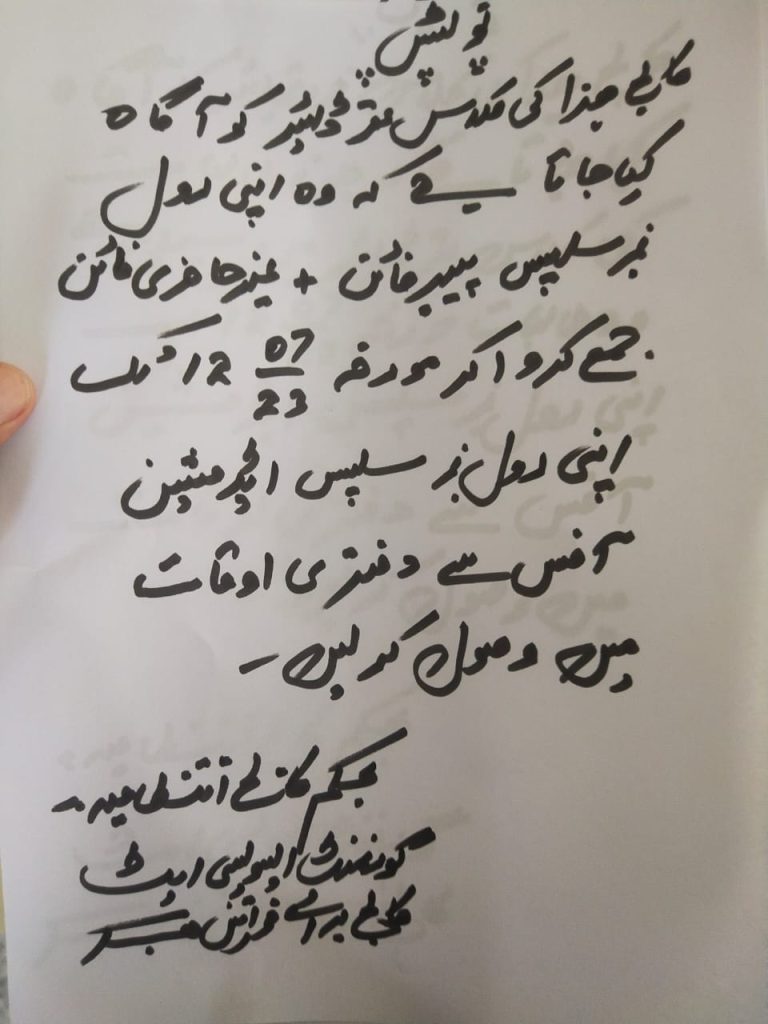 نوٹس
کالج ھذا کی کلاس تھرڈ ائیر کو آگاہ
کیا جاتا ہے کہ وہ اپنی رول
نمبر سلپس پیپر فائن + غیر حاضری فائن
جمع کروا کر مورخہ 07/23 12 اگر
اپنی رول نمبر سلپس ایڈمیشن
آفس سے دفتری اوقات
میں وصول کر لیں ۔
بحکم کالج انتظامیہ ۔
گورنمنٹ ایسوسی ایٹ
کالج برائے خواتین